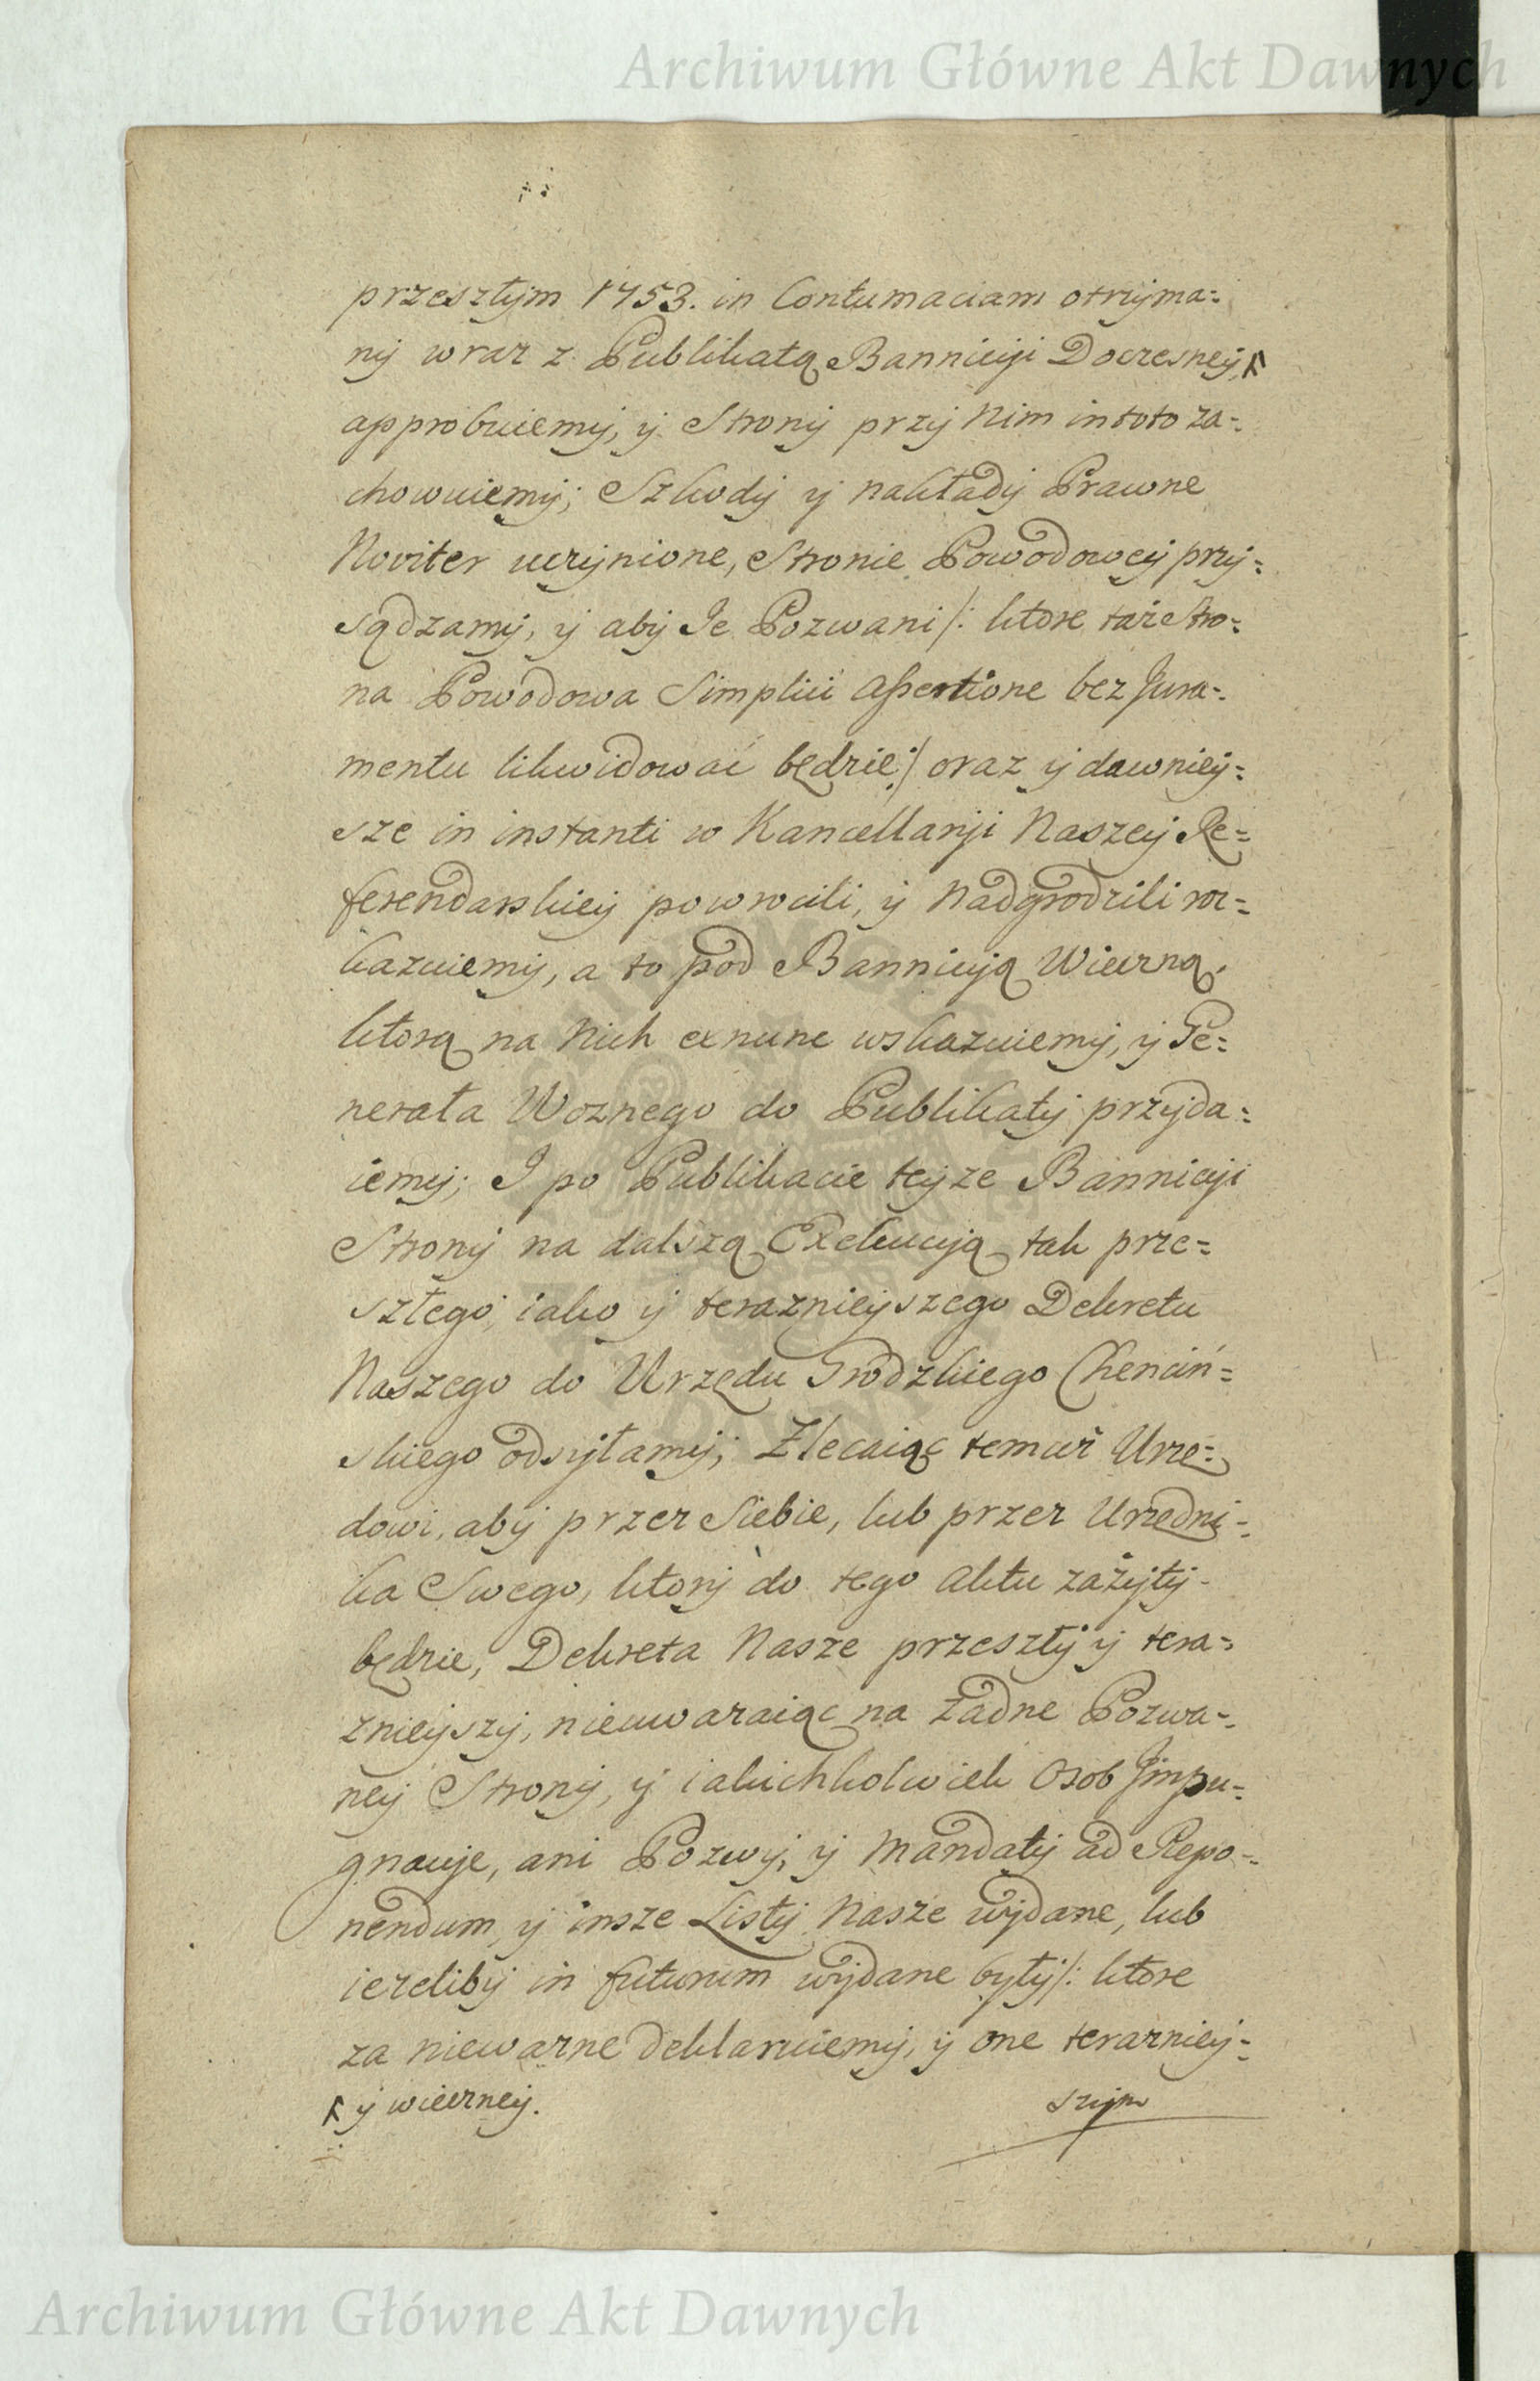 Archiwum Główne Akt Dawnych
przeszłym 1753. in Contumaciam otrzyma=
ny wraz z Publikatą Bannicyi Doczesney,
approbuiemy, y Strony przy Nim in toto za=
chowuiemy; Szkody y nakłady Prawne
Noviter uczynione, Stronie Powodowey przy=
sądzamy, y aby Je Pozwani /: ktore taż Stro=
na Powodowa Simplici Assertione bez Jura=
mentu likwidować będzie :/ oraz y dawniey=
sze in instanti w Kancellaryi Naszey Re=
ferendarskiey powrocili, y Nadgrodzili roz=
kazuiemy, a to pod Bannicyą Wieczną,
ktorą na Nich ex nunc wskazuiemy, y Ge=
nerała Woznego do Publikaty przyda=
iemy; I po Publikacie teyze Bannicyi
Strony na dalszą Exekucyą tak prze=
szłego, iako y terazńieyszego Dekretu
Naszego do Urzędu Grodzkiego Chenciń=
skiego odsyłamy; Zlecaiąc temuż Urzę=
dowi, aby przez Siebie, lub przez Urzedni=
ka Swego, ktory do tego Aktu zażyty
będzie, Dekreta Nasze przeszły y tera=
znieyszy, nieuwazaiąc na żadne Pozwa=
ney Strony, y iakichkolwiek Osob Jmpu=
gnacyje, ani Pozwy, y Mandaty ad Repo=
nendum, y insze Listy Nasze wydane, lub
iezeliby in futurum wydane były /: ktore
za niewazne deklaruiemy, y one terazniey=
y wieczney.
szym
Archiwum Główne Akt Dawnych